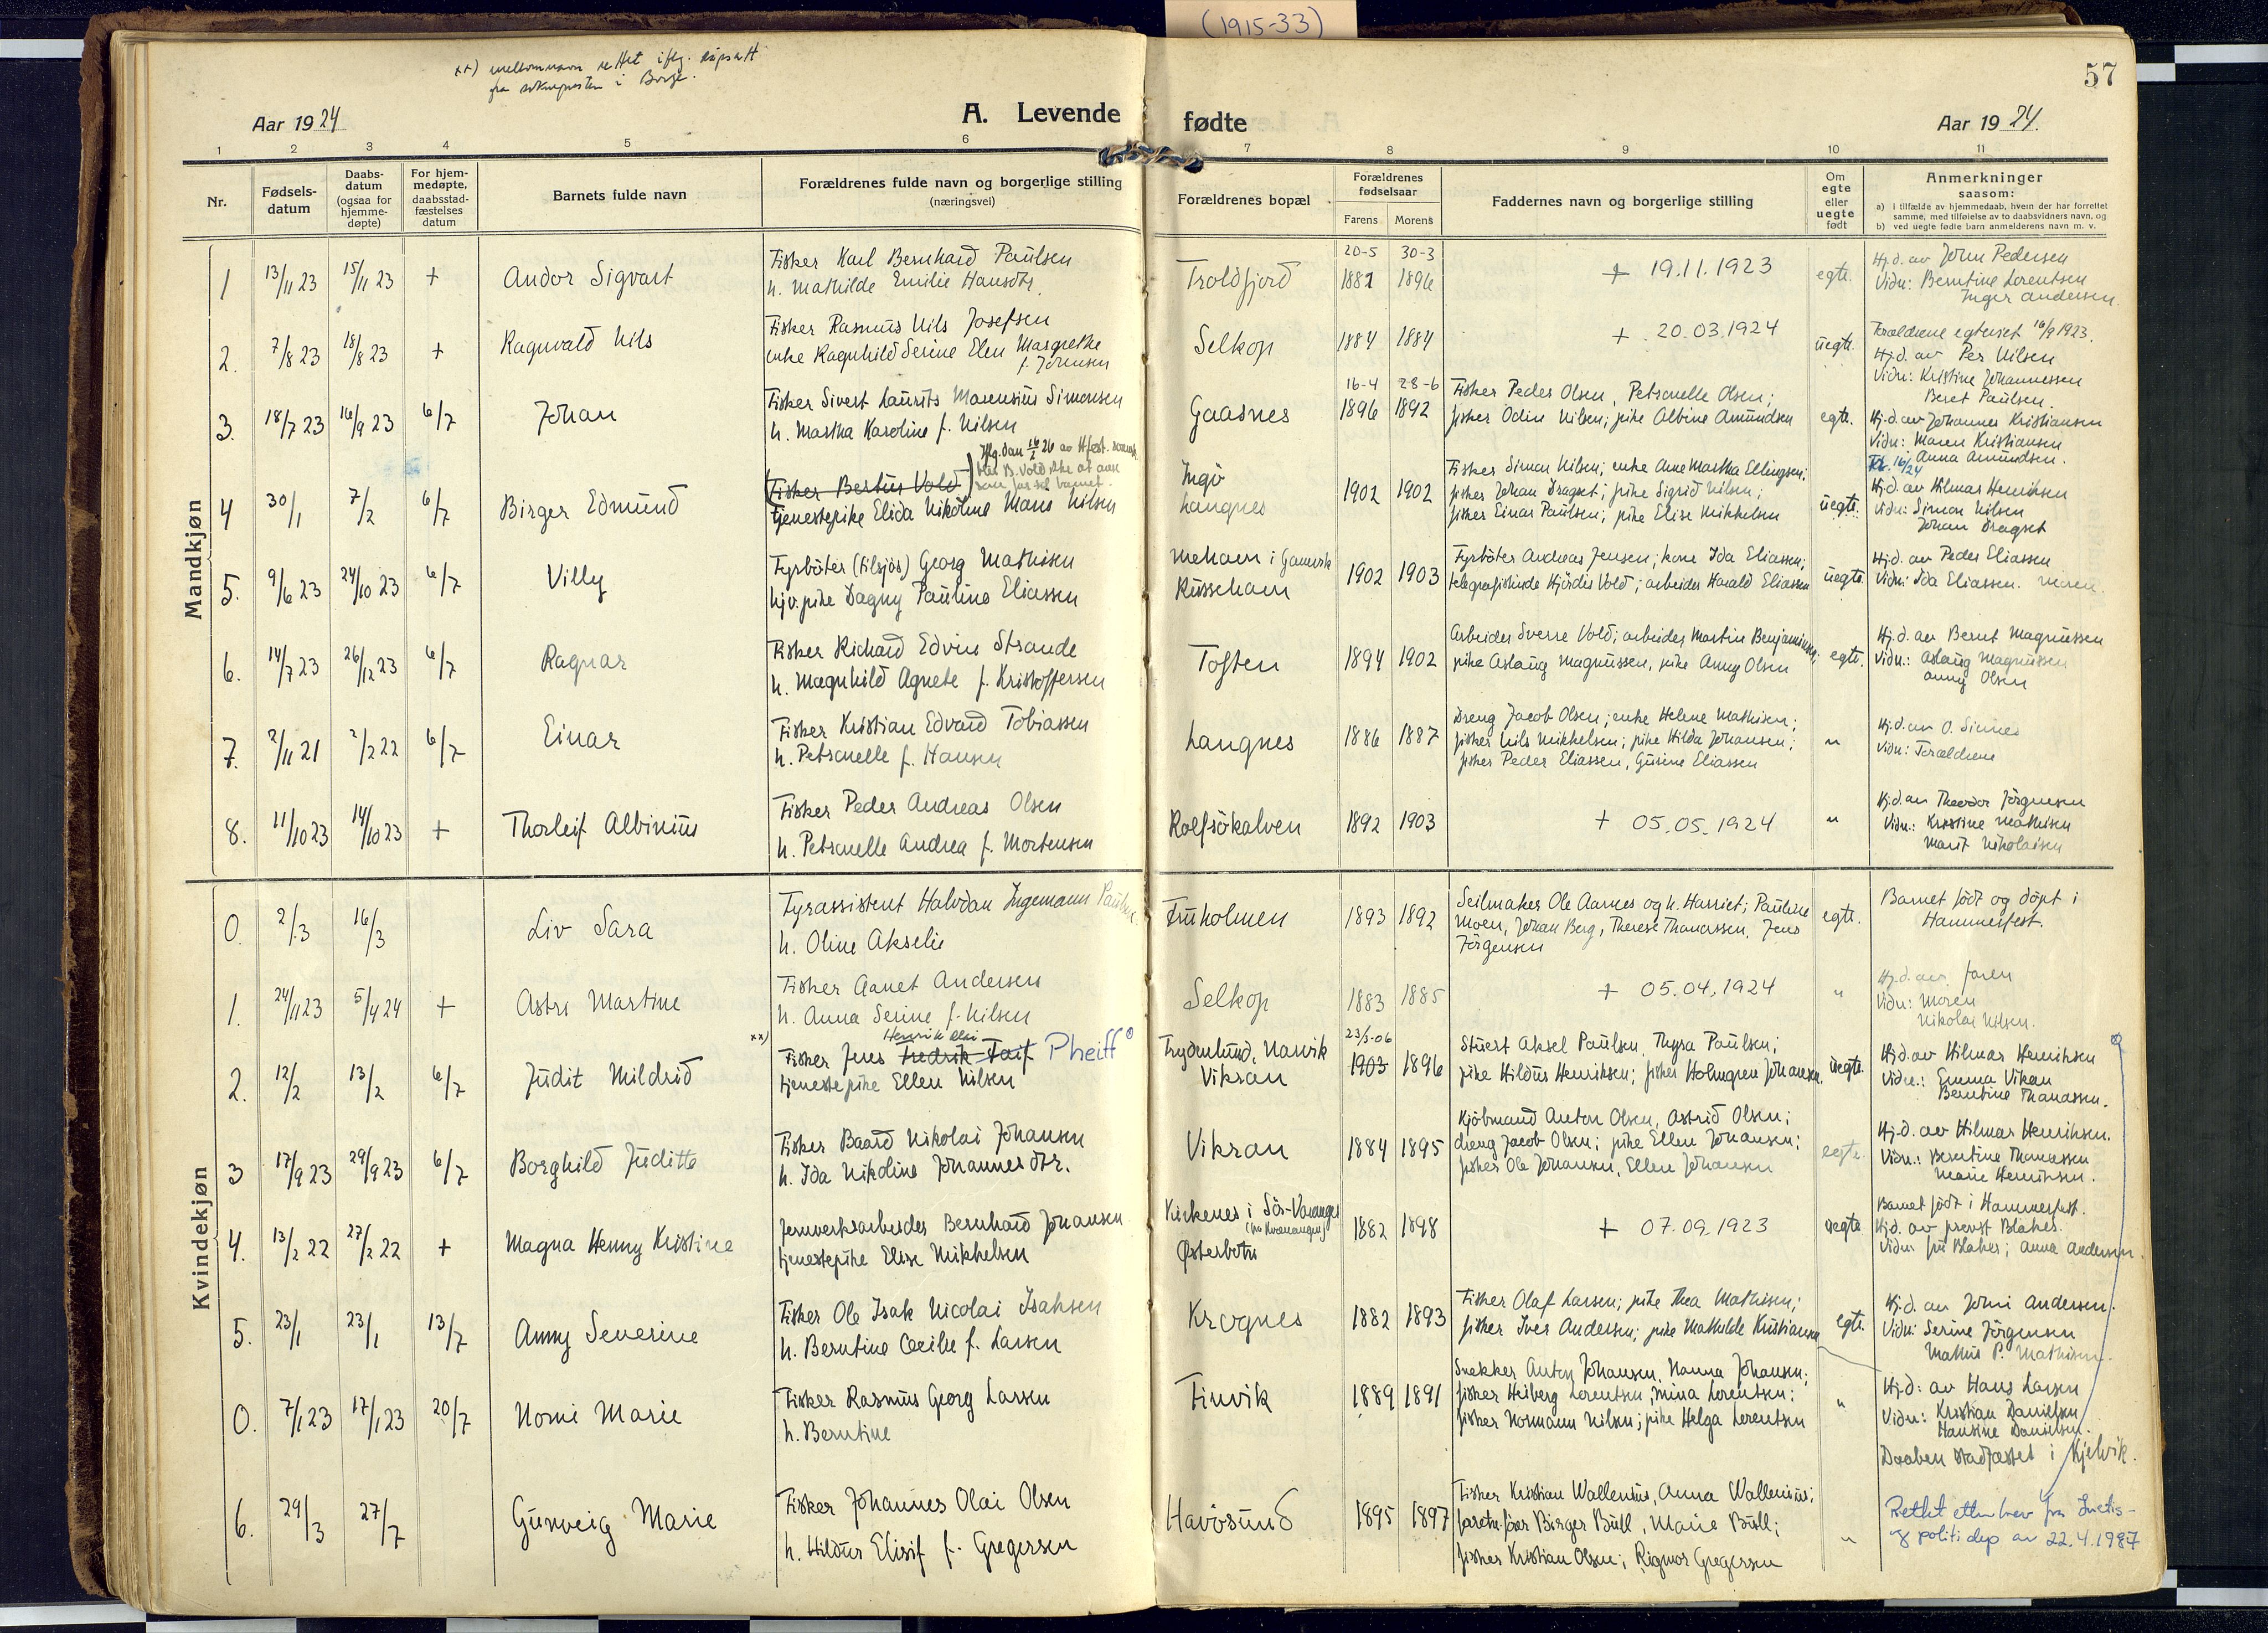 (1915-33)
xx) mellomnavn rettet iflg. dåpsatt
fra soknepresten i Borge.
57
Aar 1924
A. Levende fødte
Aar 1924.
1 2 3 4 5 6 7 8 9 10 11
Nr.
Fødsels-
datum
Daabs-
datum
(ogsaa for
hjemme-
døpte)
For hjem-
medøpte,
daabsstad-
fæstelses
datum
Barnets fulde navn
Forældrenes fulde navn og borgerlige stilling
(næringsvei)
Forældrenes bopæl
Forældrenes
fødselsaar
Farens Morens
Faddernes navn og borgerlige stilling
Om
egte
eller
uegte
født
Anmerkninger
saasom:
a) i tilfælde av hjemmedaab, hvem der har forrettet
samme, med tilføielse av to daabsvidners navn, og
b) ved uegte fødte barn anmelderens navn m. v.
Mandkjøn
1 13/11 23 15/11 23 + Andor Sigvart
Fisker Karl Bernhard Paulsen
h. Mathilde Emilie Hansdtr.
Troldfjord
20-5 30-3
1881 1896
+ 19.11.1923
egte.
Hj.d. av John Pedersen
Vidn: Berntine Lorentsen
Inger Andersen.
2. 7/8 23 18/8 23 + Ragnvald Nils
Fisker Rasmus Nils Josefsen
enke Ragnhild Serine Elen Margrethe
f. Johnsen
Selkop
1884 1884
+ 20.03.1924
uegte.
Forældrene egteviet 16/9 1923.
Hj.d. av Per Nilsen
Vidn: Kristine Johannessen
Beret Paulsen.
3. 18/7 23 16/9 23 6/7 Johan
Fisker Sivert Laurits Marensius Simonsen
h. Martha Karoline f. Nilsen
Gaasnes
16-4 28-6
1896 1892
Fisker Peder Olsen, Petronelle Olsen;
fisker Odin Nilsen; pike Albine Amundsen
egte.
Hj.d. av Johannes Kristiansen
Vidn: Maren Kristiansen
Anna Amundsen.
4 30/1 7/2 6/7 Birger Edmund
(Fisker Bertus Vold)
tjenestepike Elida Nikoline Maus Nilsen
Ingö
Langnes
1902 1902
Fisker Simon Nilsen; enke Ane Martha Ellingsen;
fisker Johan Dragset; pike Sigrid Nilsen;
fisker Einar Paulsen; pike Elise Mikkelsen
uegte.
16/24
Hj.d. av Hilmar Henriksen
Vidn: Simon Nilsen
Johan Dragset
5. 9/6 23 24/10 23 6/7 Villy
Fyrböter (tilsjös) Georg Mathisen
hjv. pike Dagny Pauline Eliassen
Mehavn i Gamvik
Russehavn
1902 1903
Fyrböter Andreas Jensen; kone Ida Eliassen;
telegrafistinde Hjördis Vold; arbeider Harald Eliassen
uegte.
Hj.d. av Peder Eliassen
Vidn: Ida Eliassen. moren
6. 14/7 23 26/12 23 6/7 Ragnar
Fisker Richard Edvin Strande
h. Magnhild Agnete f. Kristoffersen
Toften
1894 1902
Arbeider Sverre Vold; arbeider Martin Benjaminsen;
pike Aslaug Magnussen, pike Anny Olsen
egte.
Hj.d. av Bernt Magnussen
Vidn.: Aslaug Magnussen
Anny Olsen
7. 2/11 21 2/2 22 6/7 Einar
Fisker Kristian Edvard Tobiassen
h. Petronelle f. Hansen
Langnes
1886 1887
Dreng Jacob Olsen; enke Helene Mathisen;
fisker Nils Mikkelsen; pike Hilda Johansen;
fisker Peder Eliassen, Gurine Eliassen
"
Hj.d. av O. Sinnes
Vidn: Forældrene
8. 11/10 23 14/10 23 + Thorleif Albinius
Fisker Peder Andreas Olsen
h. Petronelle Andrea f. Mortensen
Rolfsökalven
1892 1903
+ 05.05.1924
"
Hj.d. av Theodor Jörgensen
Vidn.: Kristine Mathisen
Marit Nikolaisen
Kvindekjøn
0. 2/3 16/3 Liv Sara
Fyrassistent Halvdan Ingemann Paulsen
h. Oline Akselie
Fruholmen
1893 1892
Seilmaker Ole Aarnes og h. Harriet; Pauline
Moen, Johan Berg, Therese Thomassen, Jens
Jörgensen
egte.
Barnet født og döpt i
Hammerfest.
1. 24/11 23 5/4 24 + Astri Martine
Fisker Aanet Andersen
h. Anna Serine f. Nilsen
Selkop
1883 1885
+ 05.04.1924
"
Hj.d. av faren
Vidn: Moren
Nikolai Nilsen.
2. 12/2 13/2 6/7 Judit Mildrid
xx) Henrik Olai
Fisker Jens Fredrik Faif Pheiff
tjenestepike Ellen Nilsen
Frydenlund, Narvik
Vikran
23/5-06
1903 1896
Stuert Aksel Paulsen, Thyra Paulsen;
pike Hildur Henriksen; fisker Holmgren Johansen.
uegte.
Hj.d. av Hilmar Henriksen
Vidn.: Emma Vikan
Berntine Thomassen.
3 17/9 23 29/9 23 6/7 Borghild Juditte
Fisker Baard Nikolai Johansen
h. Ida Nikoline Johannesdtr.
Vikran
1884 1895
Kjöbmand Anton Olsen, Astrid Olsen;
dreng Jacob Olsen; pike Ellen Johansen;
fisker Ole Johansen, Ellen Johansen
egte.
Hj.d. av Hilmar Henriksen.
Vidn.: Berntine Thomassen
Marie Henriksen.
4. 13/2 22 27/2 22 + Magna Henny Kristine
Jernverksarbeider Bernhard Johansen
tjenestepike Elise Mikkelsen
Kirkenes i Sör-Varanger
(fra Kvænangen)
Østerbotn
1882 1898
+ 07.09.1923
uegte
Barnet født i Hammerfest.
Hj.d. av prevst Blaker.
Vidn: fru Blaker; Anna Andersen.
5. 23/1 23/1 13/7 Anny Severine
Fisker Ole Isak Nicolai Isaksen
h. Berntine Cecilie f. Larsen
Krognes
1882 1893
Fisker Olaf Larsen; pike Thea Mathisen;
fisker Iver Andersen; pike Mathilde Kristiansen
egte.
Hj.d. av John Andersen.
Vidn: Serine Jörgensen
Mathis P. Mathisen.
0. 7/1 23 17/1 23 20/7 Nomi Marie
Fisker Rasmus Georg Larsen
h. Berntine
Finvik
1889 1891
Snekker Anton Johansen, Hanna Johansen;
fisker Heiberg Lorentsen, Mina Lorentsen;
fisker Normann Nilsen; pike Helga Lorentsen
"
Hj.d: av Hans Larsen
Vidn: Kristian Danielsen
Hansine Danielsen.
Daaben stadfæstet i Kjelvik.
6. 29/3 27/7 Gunveig Marie
Fisker Johannes Olai Olsen
h. Hildur Elisif f. Gregersen
Havösund
1895 1897
Fisker Kristian Wallenius, Anna Wallenius;
Birger Bull, Marie Bull;
fisker Kristian Olsen; Rigmor Gregersen
"
Rettet etter brev fra Justis-
og politidep av 22.4.1987